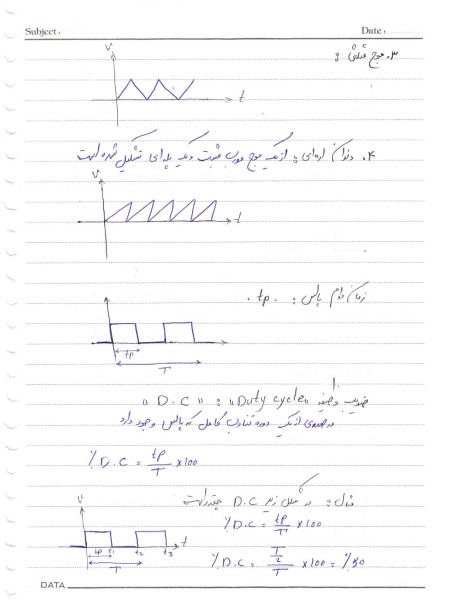 Subject: Date:
۳. موج مثلثی :
V
t
۴. دندان اره‌ای : از یک موج مورب مثبت و یک پله‌ای تشکیل شده است
V
t
زمان دوام پالس : tp .
tp
T
ضریب وظیفه "Duty cycle" : "D.C"
درصدی از یک دوره تناوب کامل که پالس وجود دارد
% D.C = tp/T × 100
مثال : در شکل زیر D.C چقدر است
V
% D.C = tp/T × 100
tp t1 t2 t3 t
T
% D.C = T/2/T × 100 = % 50
DATA